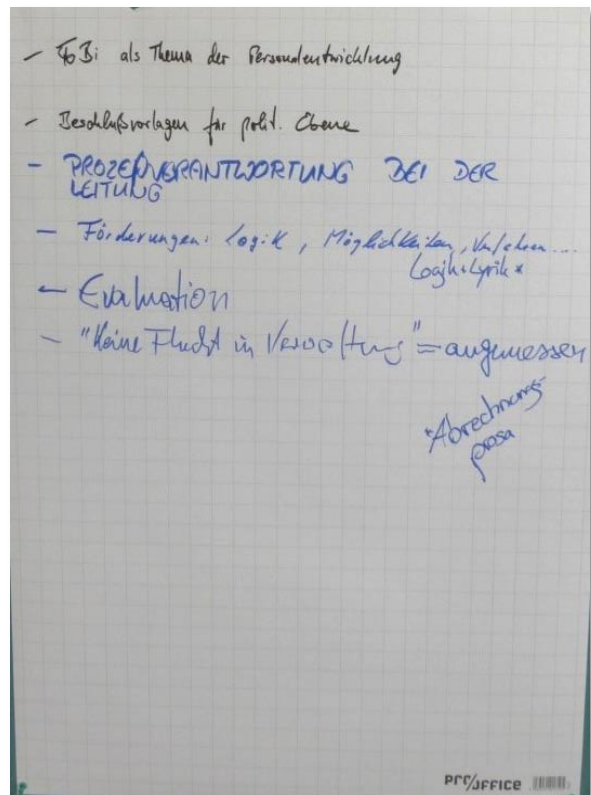 - FoBi als Thema der Personalentwicklung
- Beschlußvorlagen für polit. Ebene
- PROZEßVERANTWORTUNG BEI DER
LEITUNG
- Förderungen: Logik, Möglichkeiten, Verfahren....
Logik+Lyrik*
- Evaluation
- "Keine Flucht in Verwaltung" = angemessen
*Abrechnungs-
prosa
PRO/OFFICE